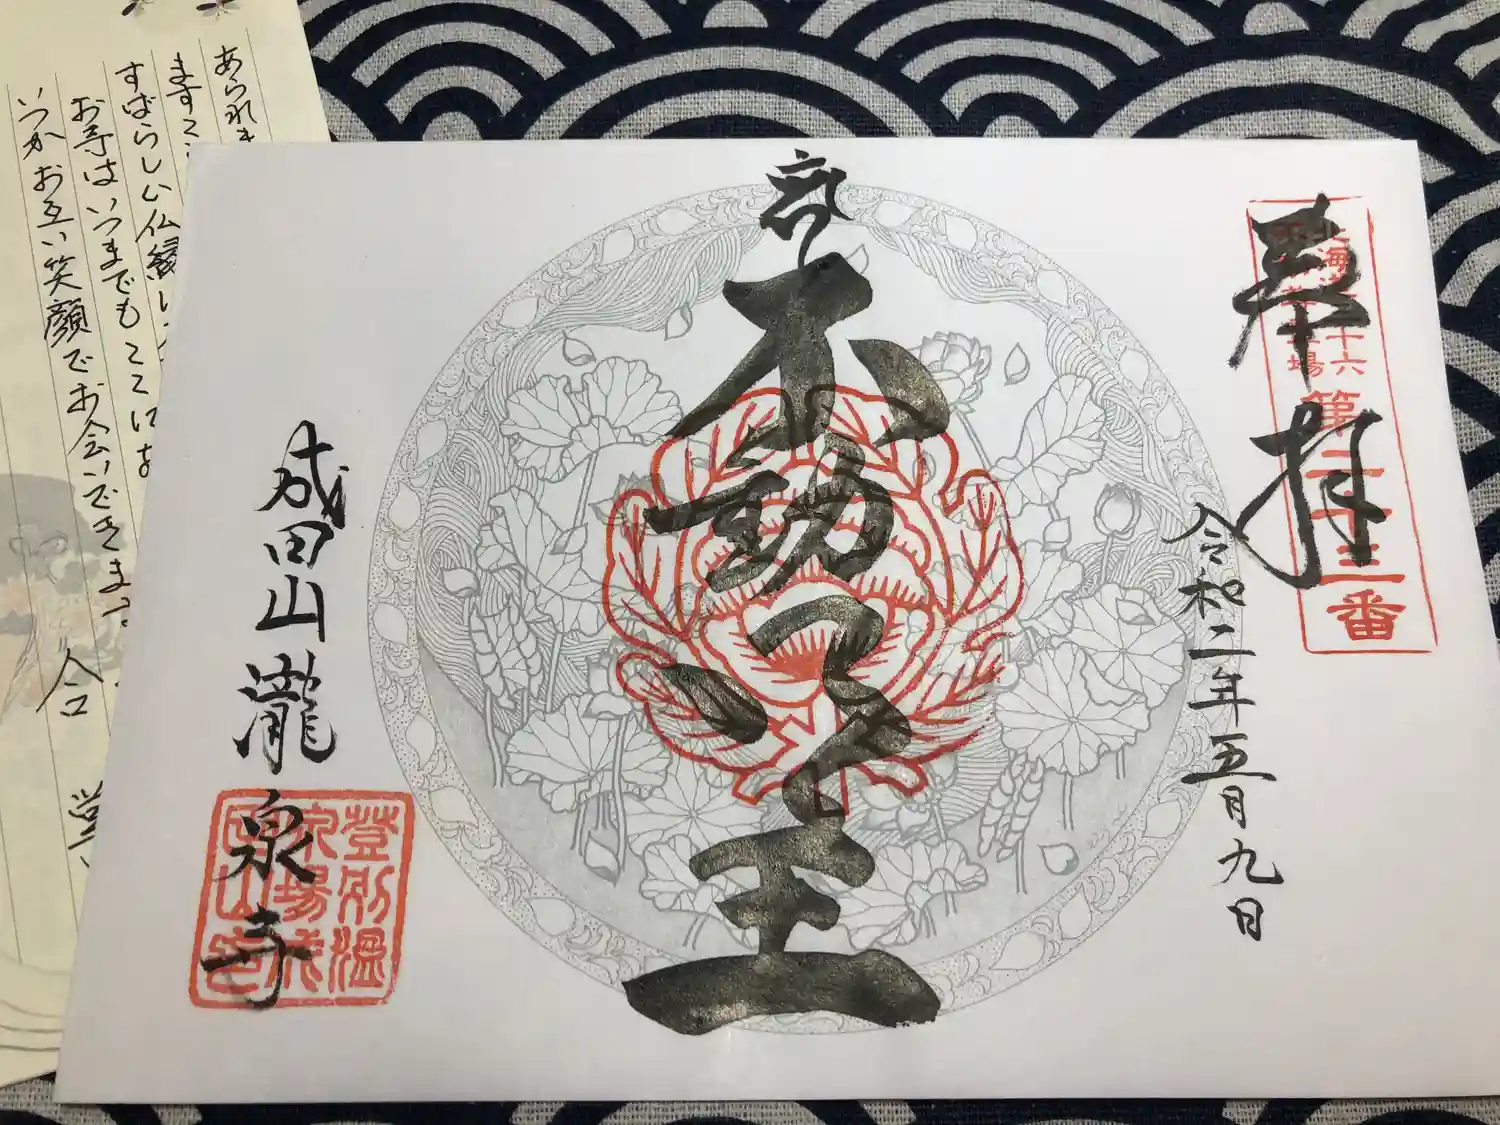 奉拝
北海道三十六
不動尊霊場
第二十三番
令和二年五月九日
不動明王
成田山瀧泉寺
登別温
泉場成
田山
あられ
ます
すばらしい仏縁
お寺はいつまでもここにを
いつかお互い笑顔でお会いできま
合
掌